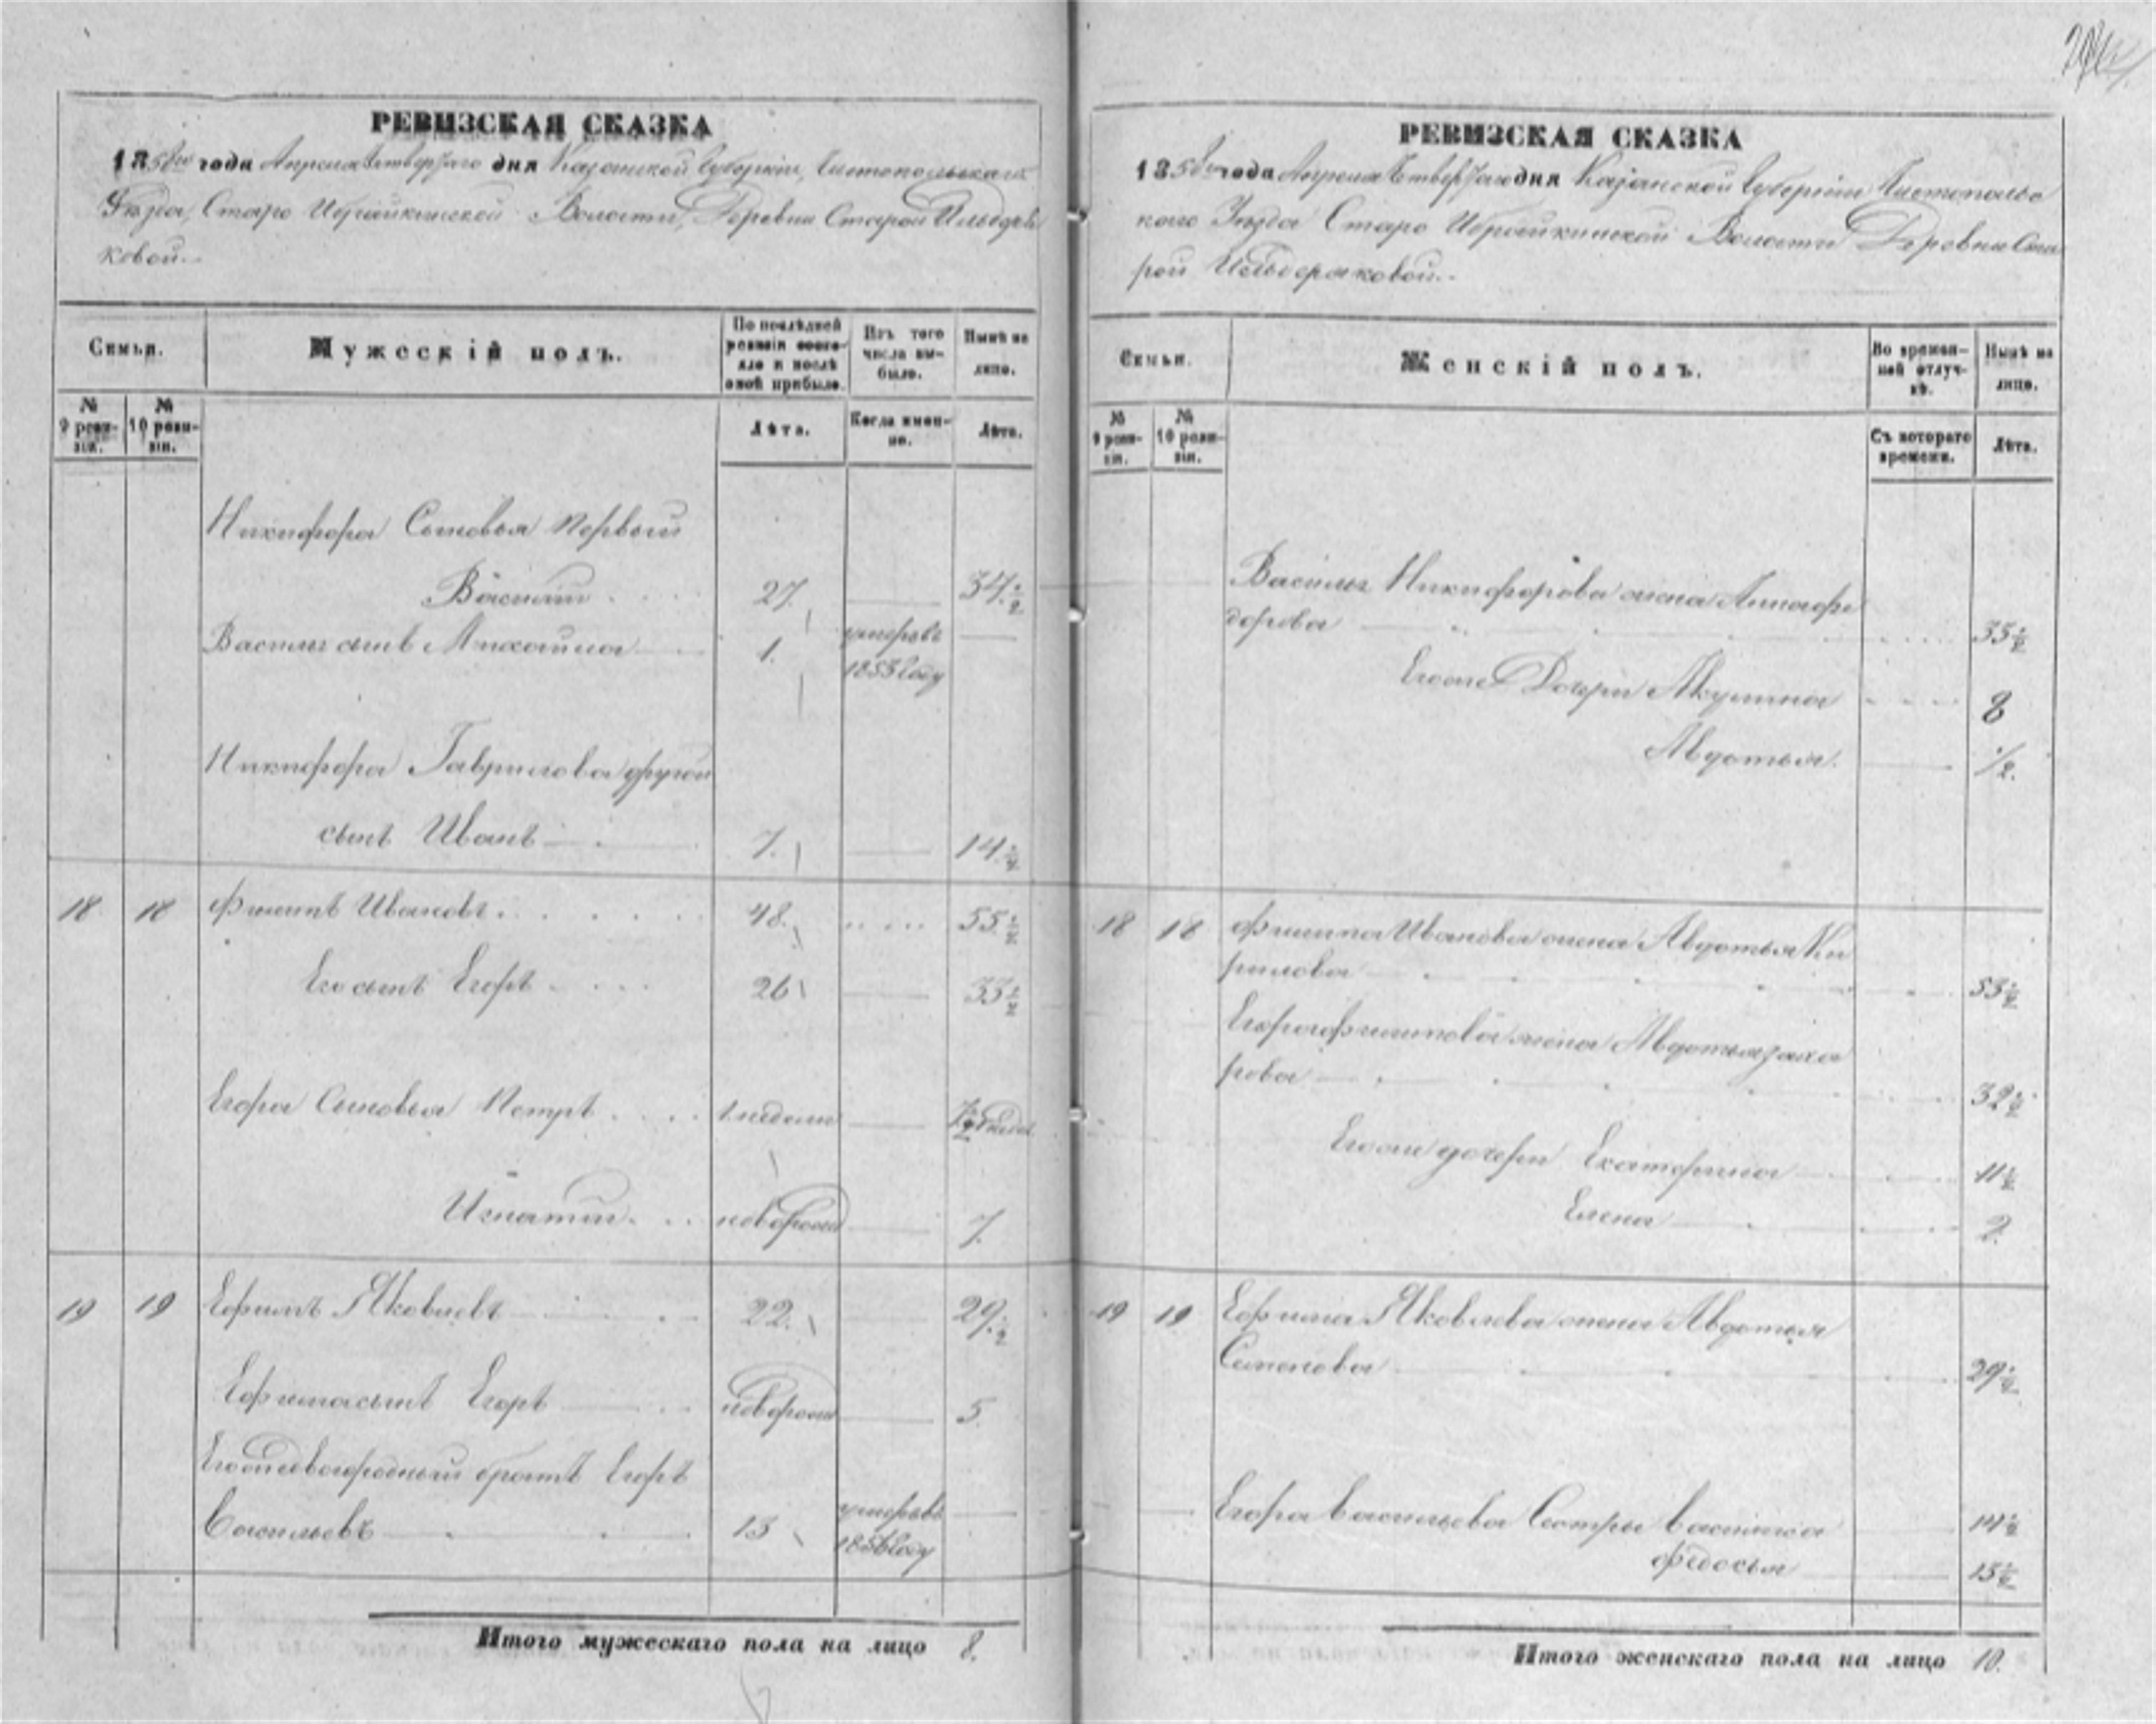 РЕВИЗСКАЯ СКАЗКА
1858го года Апреля Четвертаго дня Казанской Губернии, Чистопольскаго
Уезда, Старо Ибрайкинской Волости, Деревни Старой Ильдеря
ковой.
Семьи.
Мужескій полъ.
По послѣдней ревизіи состояло и послѣ оной прибыло.
Изъ того числа выбыло.
Нынѣ на лицо.
№ 9 ревизіи.
№ 10 ревизіи.
Лѣта.
Когда именно.
Лѣта.
Никифора Сыновья первый
Василий 27. 34 1/2
Василья сынъ Михаила 1. умеръ въ
1853 году
Никифора Гаврилова другой
сынъ Иванъ 7. 14 1/2
18 18 Филипъ Ивановъ 48. 55 1/2
Его сынъ Егоръ 26 33 1/2
Егора Сыновья Петръ недели 7 1/2
Игнатий новорож 7.
19 19 Ефимъ Яковлевъ 22. 29 1/2
Ефима сынъ Егоръ новорож 5.
Его двоюродный братъ Егоръ
Васильевъ 13 умеръ въ
1856 году
Итого мужескаго пола на лицо 8.
РЕВИЗСКАЯ СКАЗКА
1858го года Апреля Четвертаго дня Казанской Губернии Чистопольс
каго Уезда Старо Ибрайкинской Волости Деревни Ста
рой Ильдеряковой.
Семьи.
Женскій полъ.
Во временной отлучкѣ.
Нынѣ на лицо.
№ 9 ревизіи.
№ 10 ревизіи.
Съ котораго времени.
Лѣта.
Василья Никифорова жена Анна Фе
дорова 35 1/2
Его же Дочери Акулина 8
Авдотья. 1/2.
18 18 Филипа Иванова жена Авдотья Ки
рилова 53 1/2
Егора Филипова жена Авдотья Заха
рова 32 1/2
Его же дочери Екатерина 11 1/2
Елена 2.
19 19 Ефима Яковлева жена Авдотья
Семенова 29 1/2
Егора Васильева Сестры Василиса 14 1/2
Федосья 15 1/2
Итого женскаго пола на лицо 10.